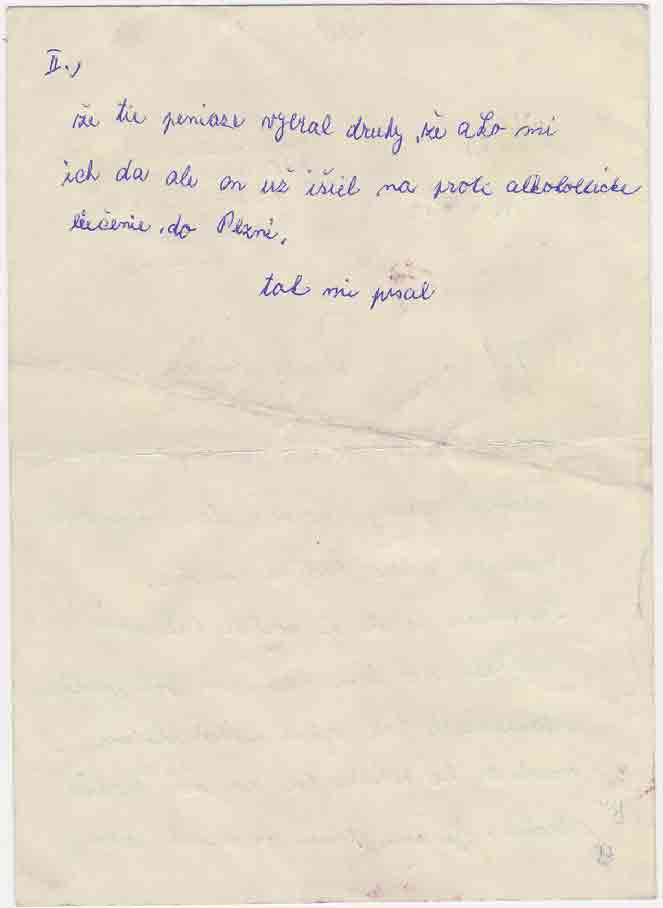 II.,
že tie peniaze vybral druhy, že ako mi
ich da ale on už išiel na proti alkoholicke
liečenie, do Plzně,
tak mi písal